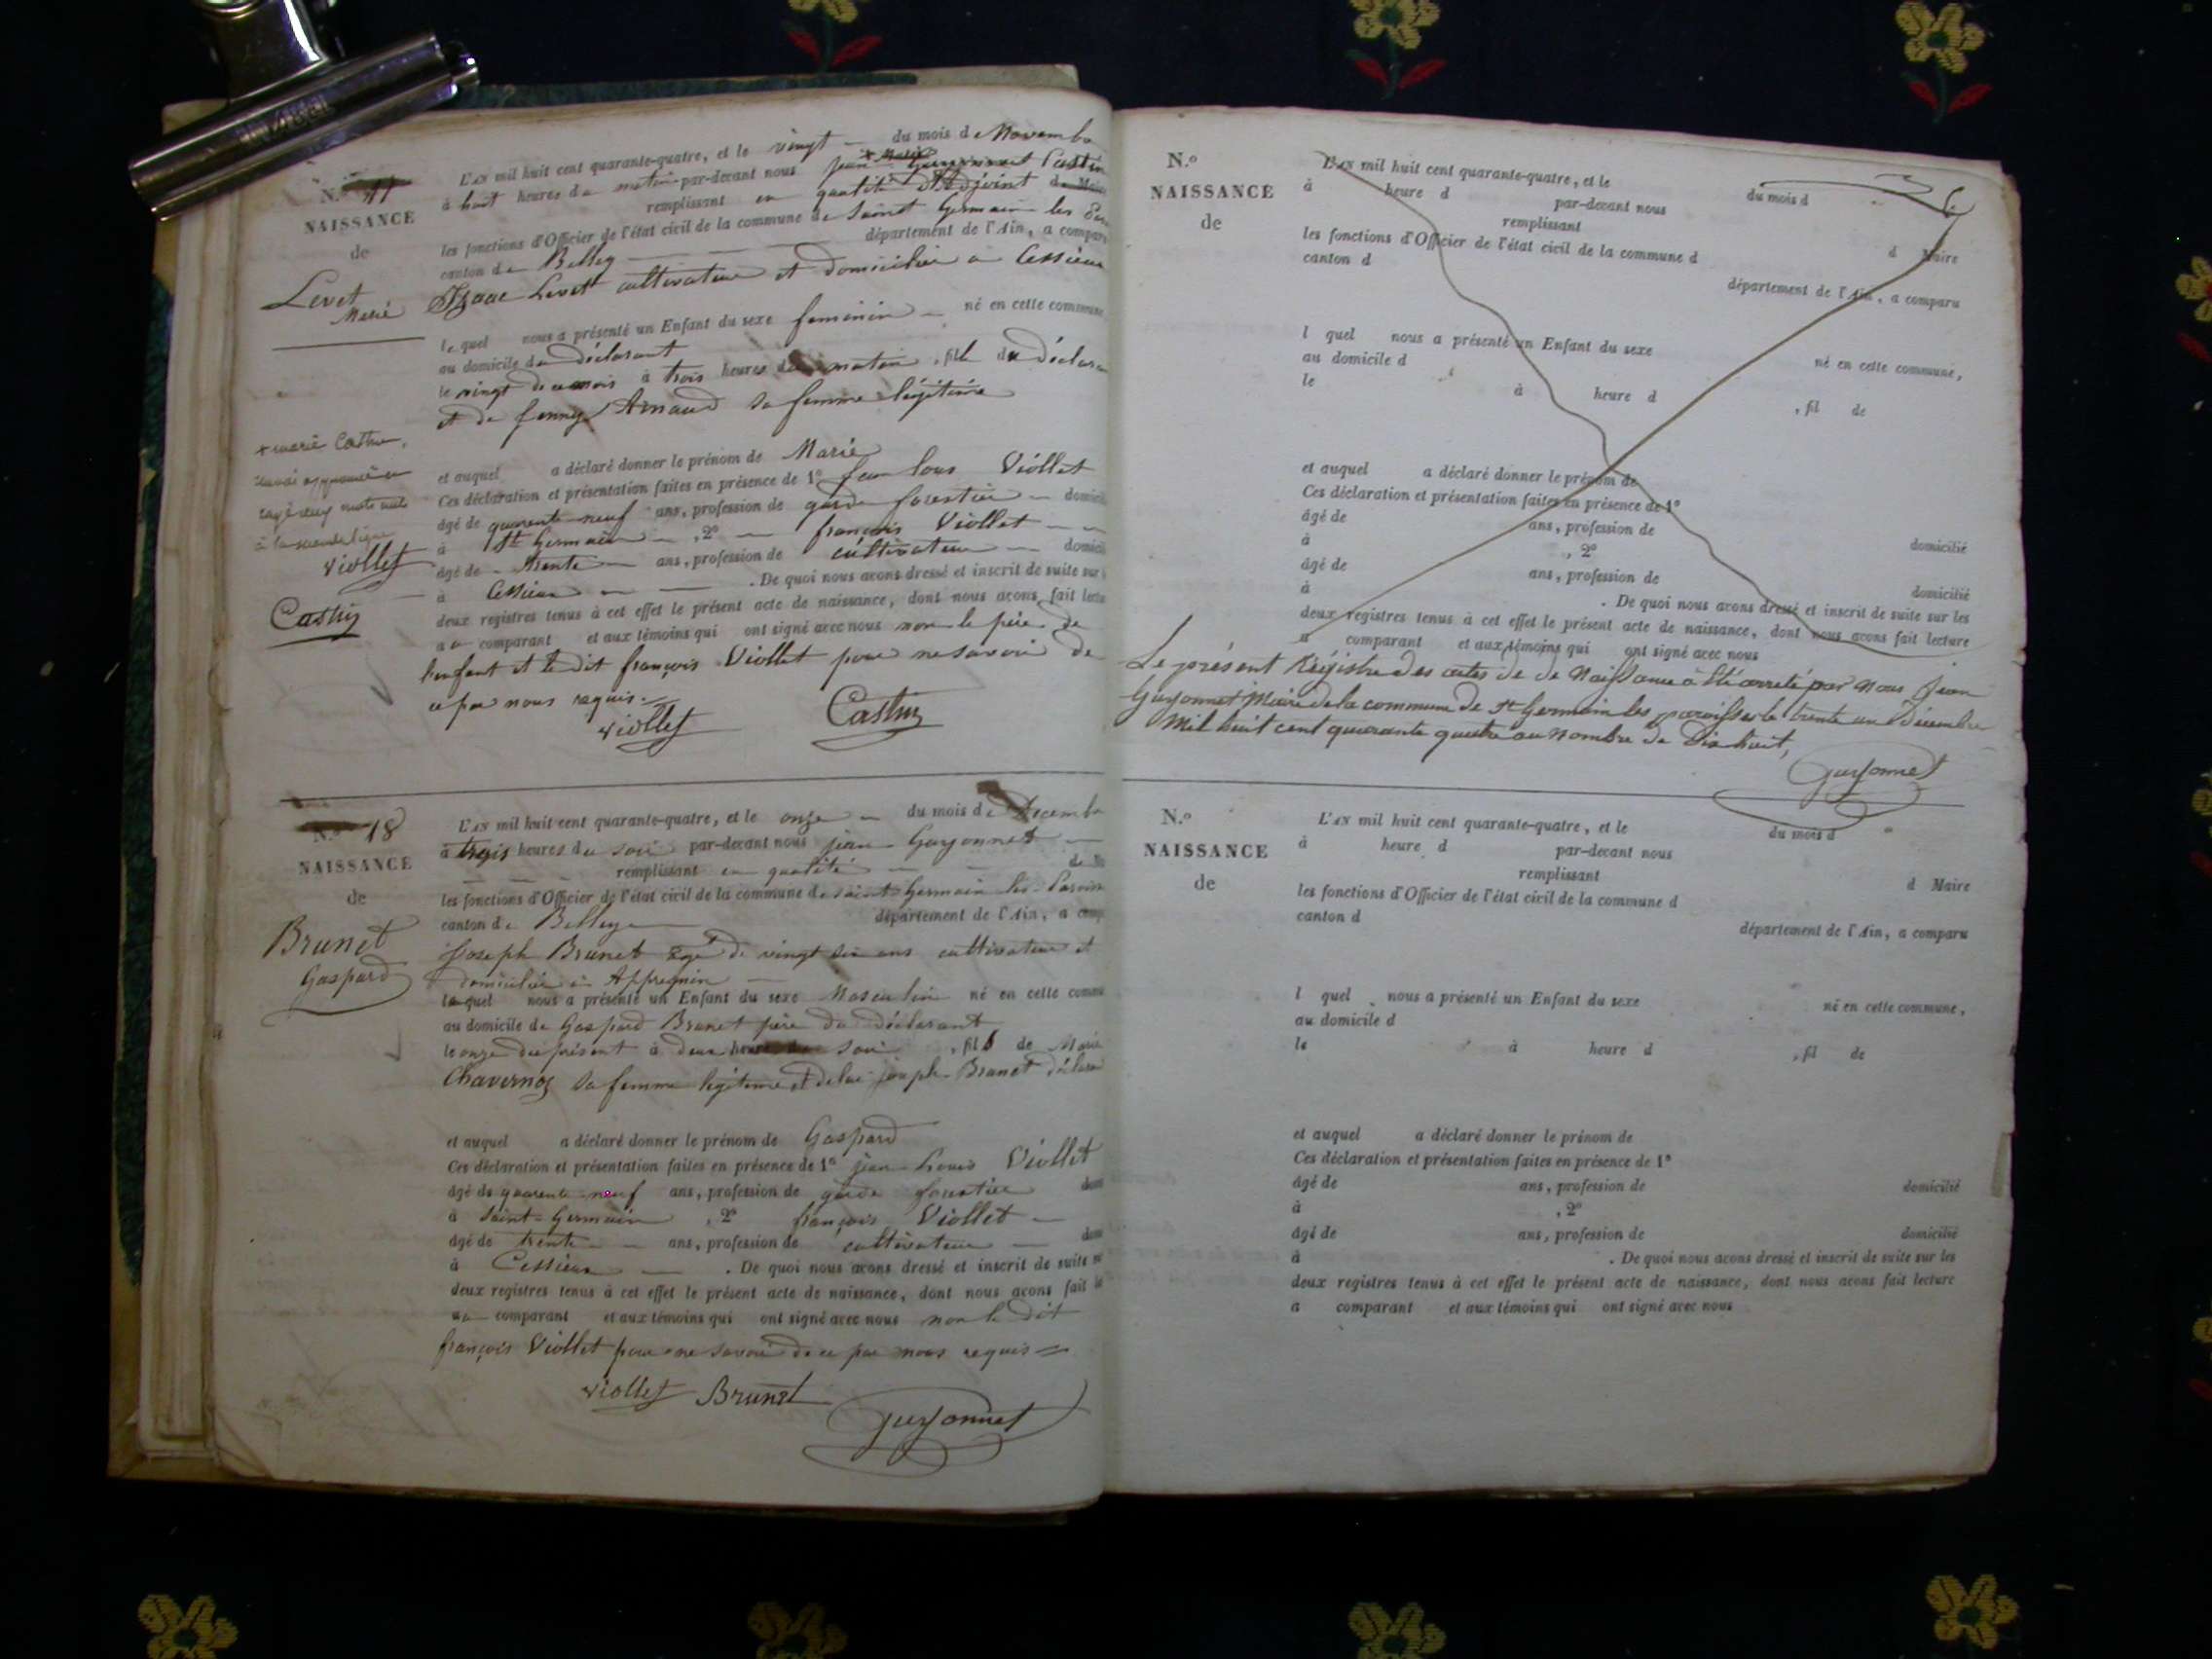 N.º 17
NAISSANCE
de
Levet
Marie
L'AN mil huit cent quarante-quatre, et le vingt du mois de Novembre
à huit heures du matin par-devant nous jean + Marie Guyonnet Castin
remplissant en qualité d'Adjoint de Maire
les fonctions d'Officier de l'état civil de la commune de Saint Germain les
canton de Belley département de l'Ain, a comparu
Izaac Levet cultivateur et domicilié à Cessieux
lequel nous a présenté un Enfant du sexe feminin né en cette commune
au domicile du déclarant
le vingt de ce mois à trois heures du matin, fille du déclarant
et de fanny Arnaud sa femme légitime
+ marie Castin,
à la seconde ligne
viollet
Castin
et auquel a déclaré donner le prénom de Marie
Ces déclaration et présentation faites en présence de 1º Jean louis Viollet
âgé de quarente-neuf ans, profession de garde forestier domicilié
à St Germain, 2º françois Viollet
âgé de trente ans, profession de cultivateur domicilié
à Cessieux . De quoi nous avons dressé et inscrit de suite sur
deux registres tenus à cet effet le présent acte de naissance, dont nous avons fait lecture
au comparant et aux témoins qui ont signé avec nous non le père de
l'enfant et le dit françois Viollet pour ne savoir de
ce par nous requis.
viollet Castin
N.º 18
NAISSANCE
de
Brunet
Gaspard
L'AN mil huit cent quarante-quatre, et le onze du mois de Décembre
à trois heures du soir par-devant nous jean Guyonnet
remplissant en qualité de
les fonctions d'Officier de l'état civil de la commune de saint Germain les Paroisses
canton de Belley département de l'Ain, a comparu
Joseph Brunet âgé de vingt six ans cultivateur et
domicilié à Appregnin
lequel nous a présenté un Enfant du sexe Masculin né en cette commune
au domicile de Gaspard Brunet père du déclarant
le onze du présent à deux heures du soir, fils de Marie
Chavernoz sa femme legitime et de lui joseph Brunet déclarant
et auquel a déclaré donner le prénom de Gaspard
Ces déclaration et présentation faites en présence de 1º jean Louis Viollet
âgé de quarente neuf ans, profession de garde forestier domicilié
à Saint-Germain, 2º françois Viollet
âgé de trente ans, profession de cultivateur
à Cessieux . De quoi nous avons dressé et inscrit de suite
deux registres tenus à cet effet le présent acte de naissance, dont nous avons fait
au comparant et aux témoins qui ont signé avec nous non le dit
françois Viollet pour ne savoir de ce par nous requis
viollet Brunet
Guyonnet
N.º
NAISSANCE
de
L'AN mil huit cent quarante-quatre, et le du mois d
à heure d par-devant nous
remplissant d Maire
les fonctions d'Officier de l'état civil de la commune d
canton d département de l'Ain, a comparu
l quel nous a présenté un Enfant du sexe né en cette commune,
au domicile d
le à heure d , fil de
et auquel a déclaré donner le prénom de
Ces déclaration et présentation faites en présence de 1º
âgé de ans, profession de domicilié
à , 2º
âgé de ans, profession de domicilié
à . De quoi nous avons dressé et inscrit de suite sur les
deux registres tenus à cet effet le présent acte de naissance, dont nous avons fait lecture
a comparant et aux témoins qui ont signé avec nous
Le présent Régistre des actes de de Naissance à été arreté par nous Jean
Guyonnet Maire de la commune de St Germain les paroisses le trente un Décembre
Mil huit cent quarante quatre au nombre de Dix huit,
Guyonnet
N.º
NAISSANCE
de
L'AN mil huit cent quarante-quatre, et le du mois d
à heure d par-devant nous
remplissant d Maire
les fonctions d'Officier de l'état civil de la commune d
canton d département de l'Ain, a comparu
l quel nous a présenté un Enfant du sexe né en cette commune,
au domicile d
le à heure d , fil de
et auquel a déclaré donner le prénom de
Ces déclaration et présentation faites en présence de 1º
âgé de ans, profession de domicilié
à , 2º
âgé de ans, profession de domicilié
à . De quoi nous avons dressé et inscrit de suite sur les
deux registres tenus à cet effet le présent acte de naissance, dont nous avons fait lecture
a comparant et aux témoins qui ont signé avec nous